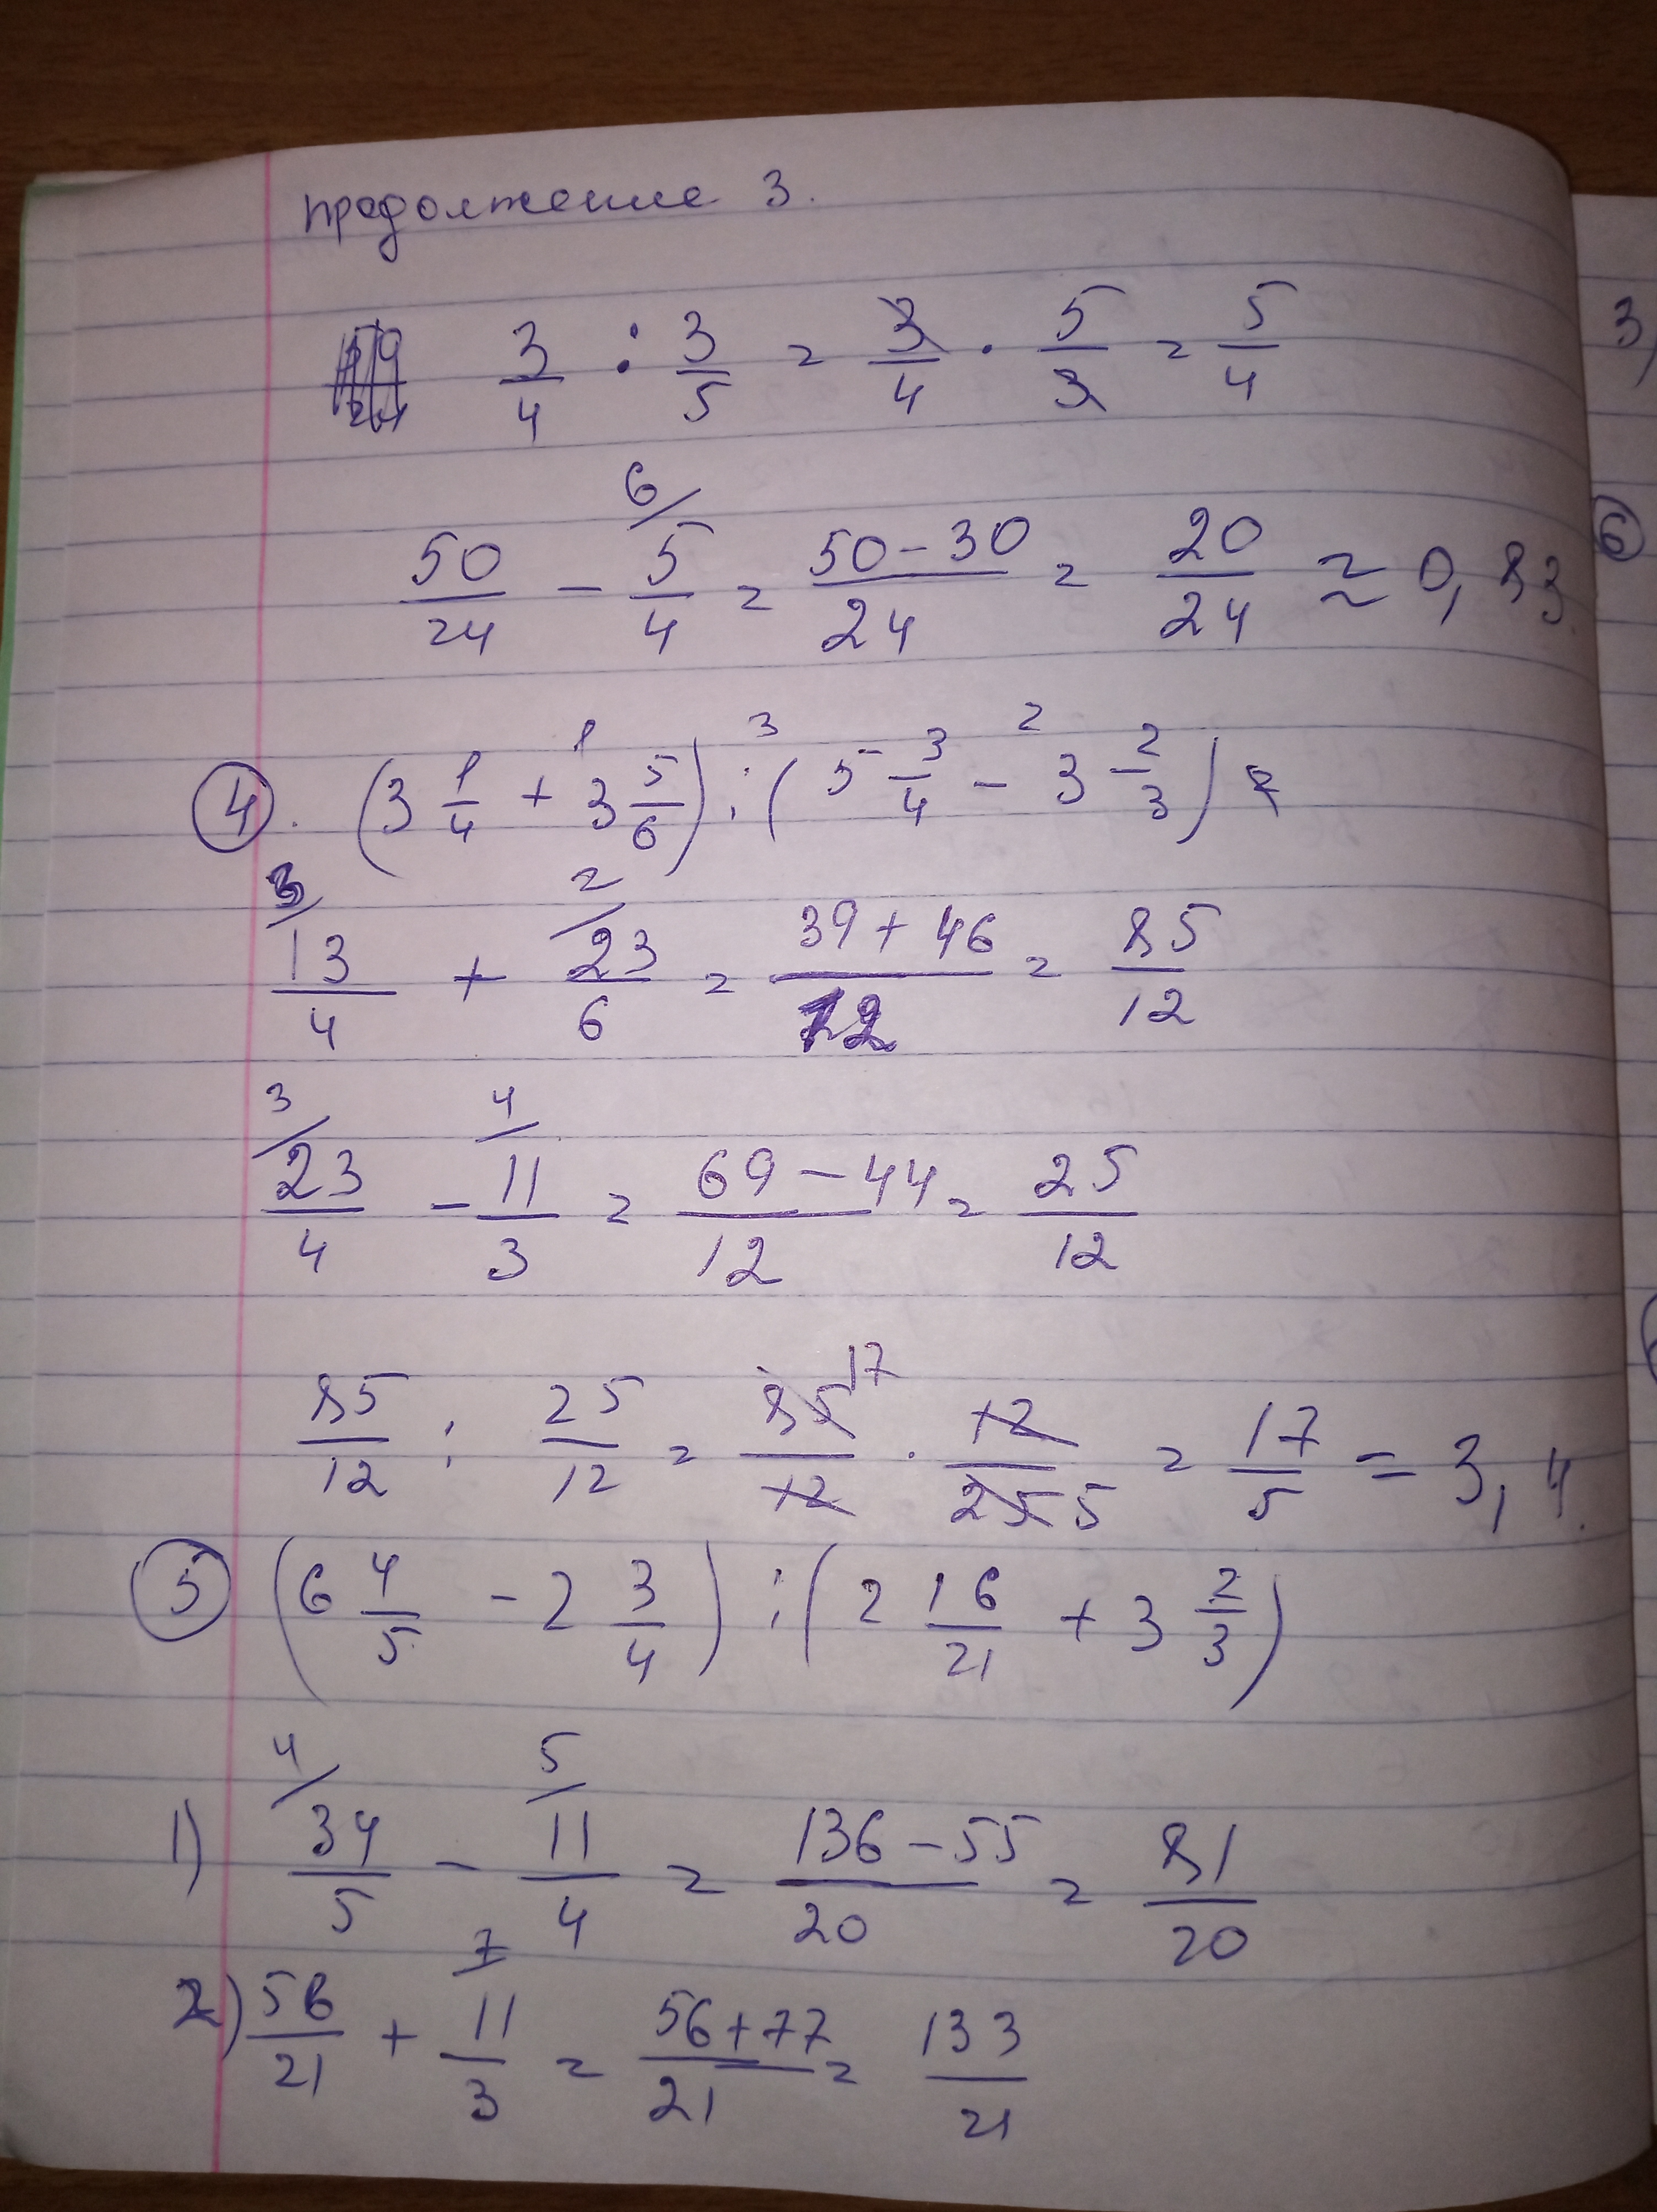 продолжение 3.
3/4 : 3/5 = 3/4 · 5/3 = 5/4
6/
50/24 - 5/4 = (50-30)/24 = 20/24 ≈ 0,83.
1 3 2
4. (3 1/4 + 3 5/6) : (5 3/4 - 3 2/3)
3/ 2/
13/4 + 23/6 = (39+46)/12 = 85/12
3/ 4/
23/4 - 11/3 = (69-44)/12 = 25/12
85/12 : 25/12 = 85 17/12 · 12/25 5 = 17/5 = 3,4.
5 (6 4/5 - 2 3/4) : (2 16/21 + 3 2/3)
4/ 5/
1) 34/5 - 11/4 = (136-55)/20 = 81/20
7/
2) 56/21 + 11/3 = (56+77)/21 = 133/21
3,
6